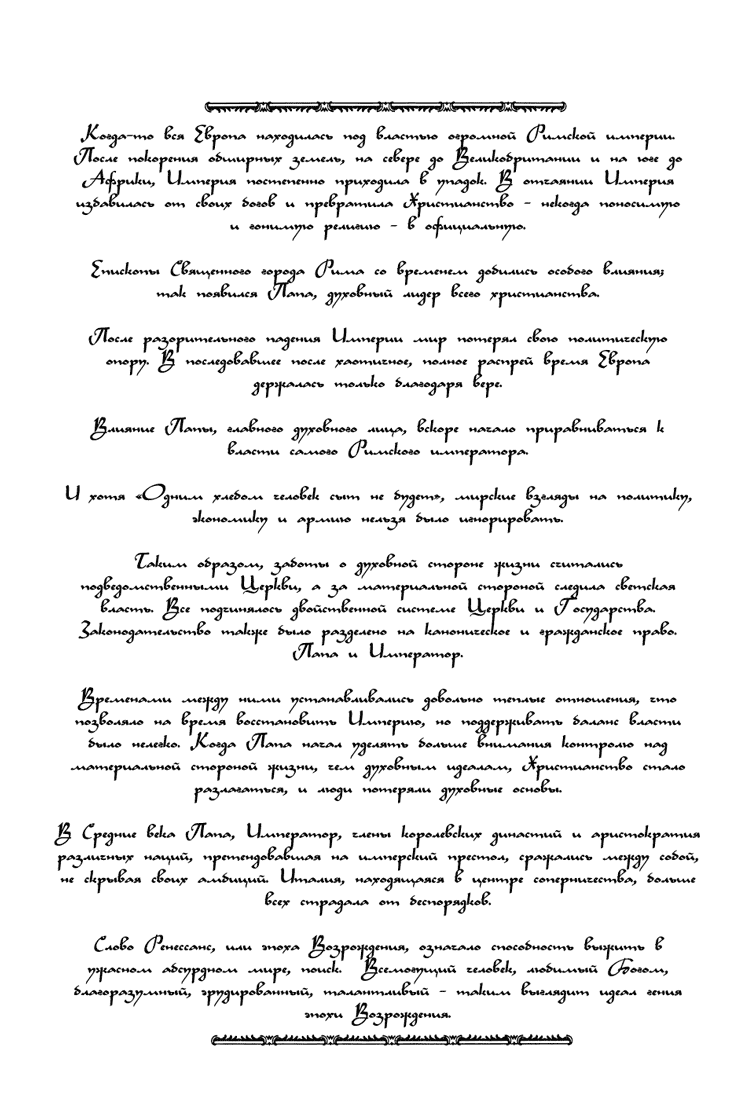 Когда-то вся Европа находилась под властью огромной Римской империи.
После покорения обширных земель, на севере до Великобритании и на юге до
Африки, Империя постепенно приходила в упадок. В отчаянии Империя
избавилась от своих богов и превратила Христианство - некогда поносимую
и гонимую религию - в официальную.
Епископы Священного города Рима со временем добились особого влияния;
так появился Папа, духовный лидер всего христианства.
После разорительного падения Империи мир потерял свою политическую
опору. В последовавшее после хаотичное, полное распрей время Европа
держалась только благодаря вере.
Влияние Папы, главного духовного лица, вскоре начало приравниваться к
власти самого Римского императора.
И хотя «Одним хлебом человек сыт не будет», мирские взгляды на политику,
экономику и армию нельзя было игнорировать.
Таким образом, заботы о духовной стороне жизни считались
подведомственными Церкви, а за материальной стороной следила светская
власть. Все подчинялось двойственной системе Церкви и Государства.
Законодательство также было разделено на каноническое и гражданское право.
Папа и Император.
Временами между ними устанавливались довольно теплые отношения, что
позволяло на время восстановить Империю, но поддерживать баланс власти
было нелегко. Когда Папа начал уделять больше внимания контролю над
материальной стороной жизни, чем духовным идеалам, Христианство стало
разлагаться, и люди потеряли духовные основы.
В Средние века Папа, Император, члены королевских династий и аристократия
различных наций, претендовавшая на имперский престол, сражались между собой,
не скрывая своих амбиций. Италия, находящаяся в центре соперничества, больше
всех страдала от беспорядков.
Слово Ренессанс, или эпоха Возрождения, означало способность выжить в
ужасном абсурдном мире, поиск. Всемогущий человек, любимый Богом,
благоразумный, эрудированный, талантливый - таким выглядит идеал гения
эпохи Возрождения.